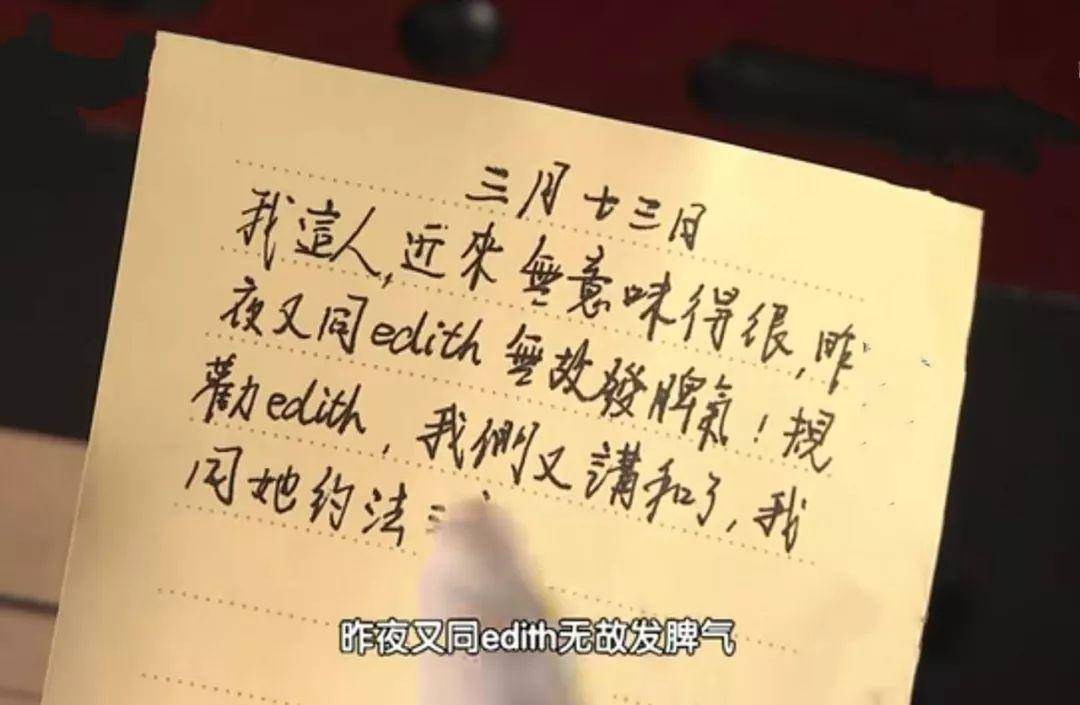 三月十三日
我這人,近來無意味得很,昨
夜又同edith無故發脾氣!規
勸edith,我們又講和了,我
同她約法三
昨夜又同edith无故发脾气